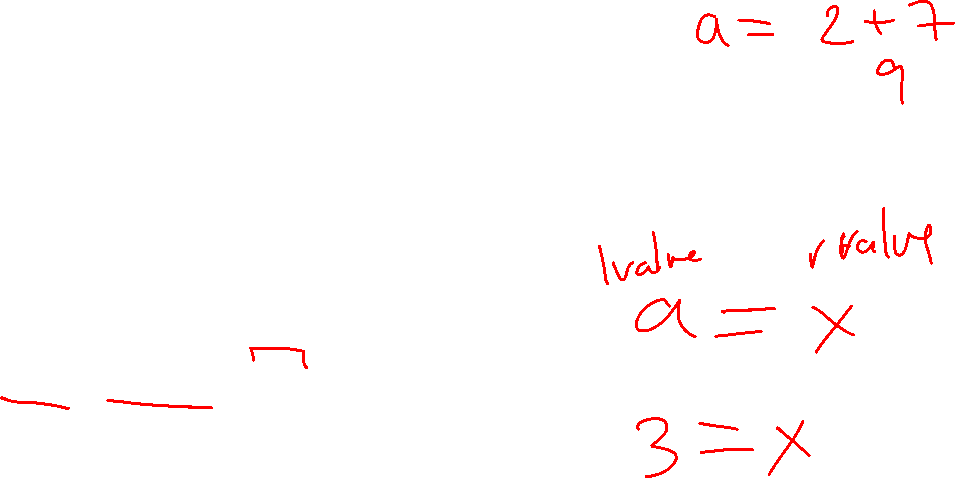 a = 2 + 7
9
lvalue rvalue
a = x
3 = x